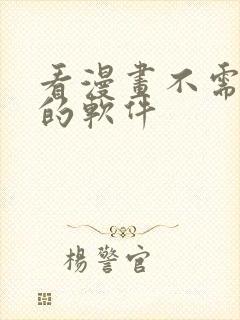 看漫畫不需
的軟件
楊警官